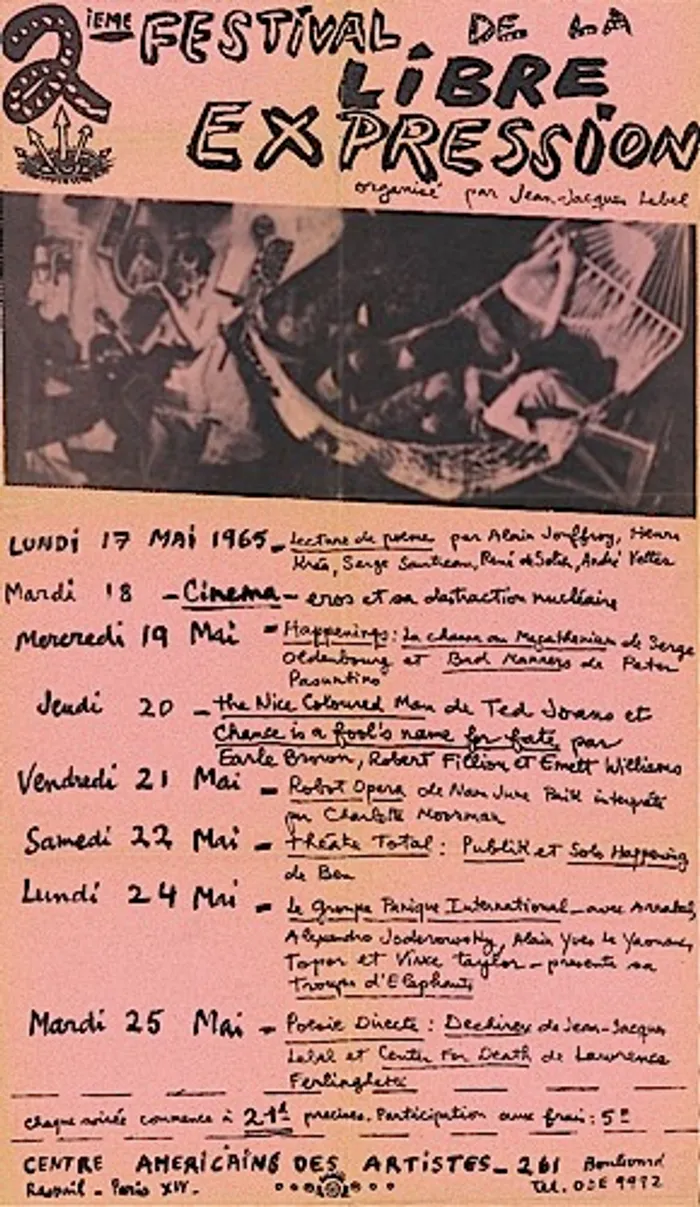 2ieme FESTIVAL DE LA
LIBRE
EXPRESSION
organisé par Jean-Jacques Lebel
LUNDI 17 MAI 1965 - Lecture de poème par Alain Jouffroy, Henri
Kréa, Serge Sautreau, René de Solier, André Velter
Mardi 18 - Cinema - eros et sa destraction nucléaire
Mercredi 19 Mai - Happenings: La chasse au de Serge
Oldenbourg et Bad Manners de Peter
Pasuntino
Jeudi 20 - the Nice Coloured Man de Ted Joans et
Chance is a fool's name for fate, par
Earle Brown, Robert Filliou et Emett Williams
Vendredi 21 Mai - Robot Opera de Nam June Paik interprété
par Charlotte Moorman
Samedi 22 Mai - théâtre Total: Publik et Solo Happening
de Ben
Lundi 24 Mai - Le groupe Panique International - avec Arrabal,
Alejandro Joderowsky, Alain Yves Le Yaouanc,
Topor et Vince Taylor - presente sa
Troupe d'Elephants
Mardi 25 Mai - Poésie Directe: Dechirex de Jean-Jacques
Lebel et Center For Death de Lawrence
Ferlinghetti
chaque soirée commence à 21h précises. Participation aux frais: 5F
CENTRE AMERICAINS DES ARTISTES - 261 Boulevard
Raspail - Paris XIV. - Tel. ODE 9992